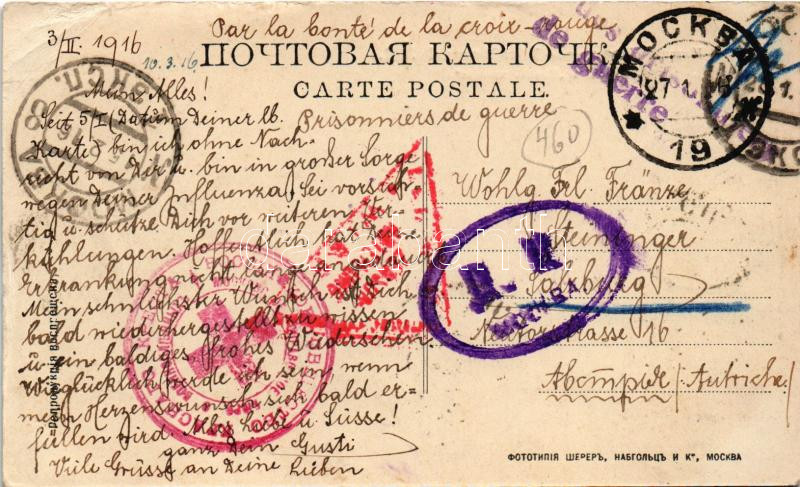 3/II 1916
10.3.16
Par la bonté de la croix-rouge
ПОЧТОВАЯ КАРТОЧК
CARTE POSTALE.
Prisonniers de guerre
de guerre
МОСКВА
27 1 16
19
460
Mein Alles!
Seit 5/I (Datum Deiner lb.
Karte) bin ich ohne Nach-
richt von Dir u. bin in großer Sorge
wegen Deiner Influenza. Sei vorsich-
tig u. schütze Dich vor weiteren Ver-
kühlungen. Hoffentlich hat Deine
Erkrankung nicht lange angedauert.
Mein sehnlichster Wunsch ist Dich
bald wiederhergestellt zu wissen
u. ein baldiges, frohes Wiedersehen.
Wie glücklich werde ich sein, wenn
mein Herzenswunsch sich bald er-
füllen wird. Alles Liebe u. Süsse!
ganz Dein Gusti
Viele Grüsse an Deine Lieben
Wohlg. Frl. Fränze
Steininger
Salzburg
16
Австрія (Autriche)
Д. Ц
МОСКВА
Репродукція воспрещена
ФОТОТИПІЯ ШЕРЕРЪ, НАБГОЛЬЦЪ И Кº, МОСКВА